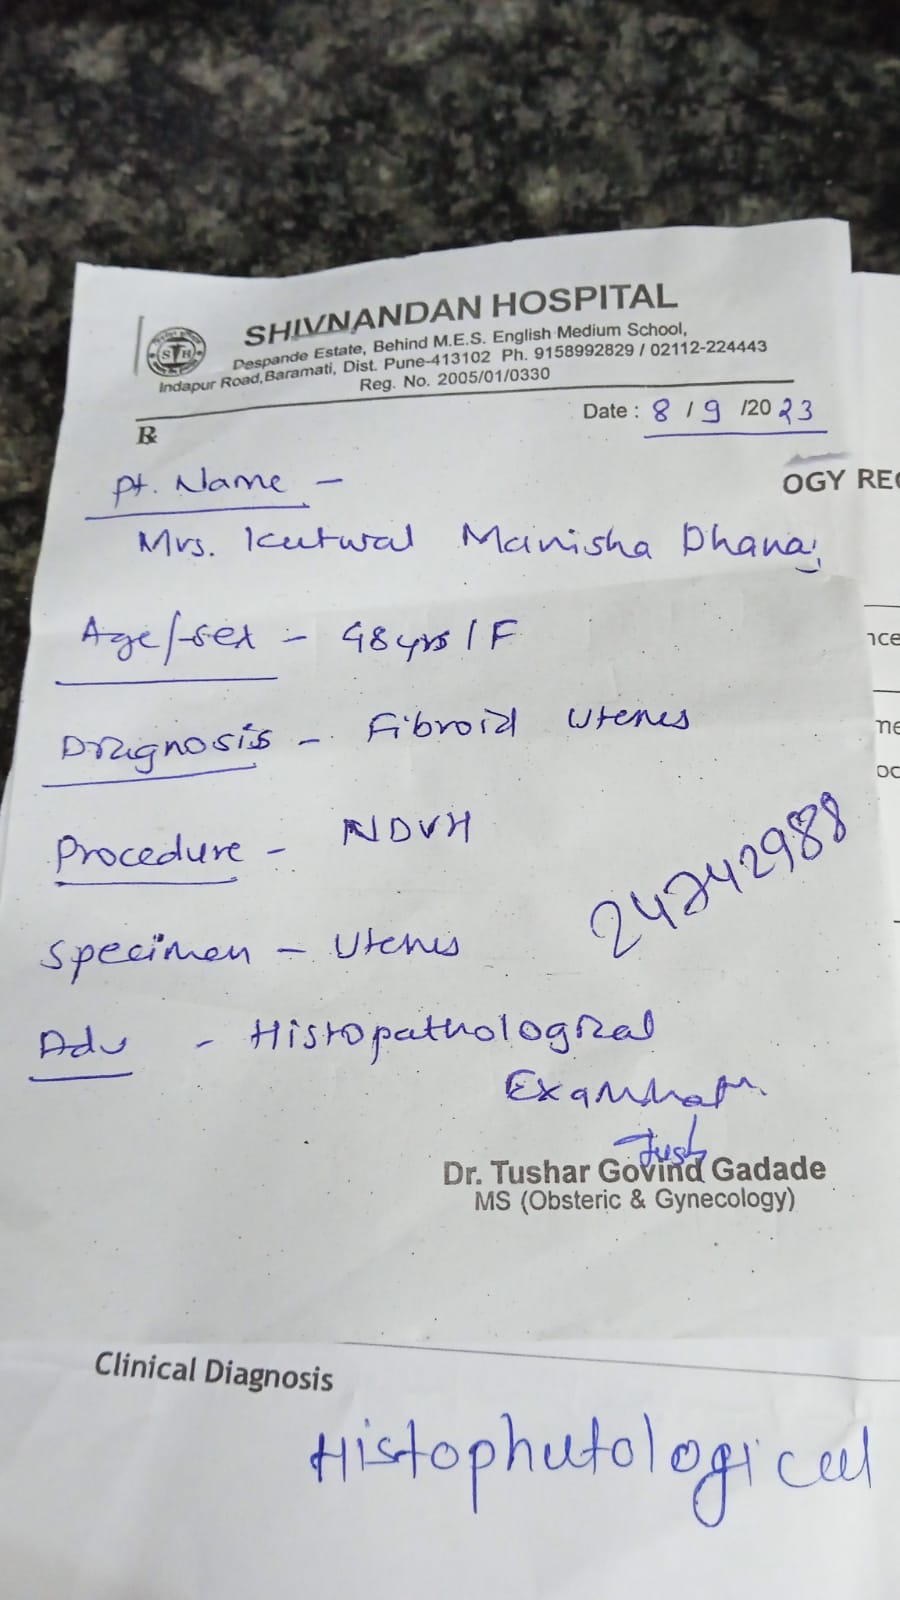 SHIVNANDAN HOSPITAL
Despande Estate, Behind M.E.S. English Medium School,
Indapur Road,Baramati, Dist. Pune-413102 Ph. 9158992829 / 02112-224443
Reg. No. 2005/01/0330
Date : 8 / 9 /2023
Rx
OGY REC
Pt. Name -
Mrs. Kutwal Manisha Dhanaj
Age/sex - 48yrs / F
nce
Diagnosis - Fibroid Uterus
me
oc
Procedure - NDVH
24742988
Specimen - Uterus
Adv - Histopathological
Examination
Dr. Tushar Govind Gadade
MS (Obsteric & Gynecology)
Clinical Diagnosis
Histophutological